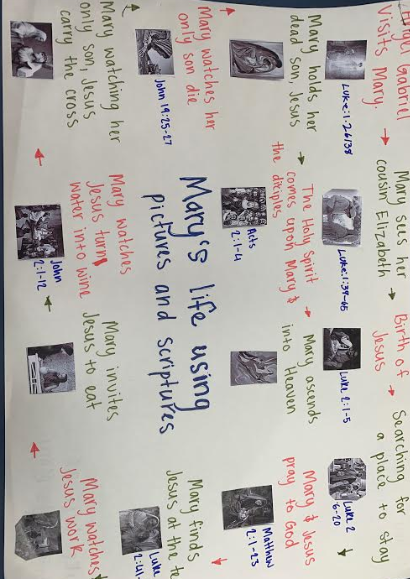 Gabriel
Visits Mary.
Mary sees her
cousin Elizabeth
Birth of
Jesus
Searching for
a place to stay
Luke:1-26/38
Luke:1:39-65
Luke 2:1-5
Luke 2
6-20
Mary holds her
dead son, Jesus
The Holy Spirit
comes upon Mary &
the diciples
Mary ascends
into Heaven
Mary & Jesus
pray to God
Acts
2:1-4
Matthew
2:1-23
Mary watches her
only son die
Mary's life using
pictures and scriptures
Mary finds
Jesus at the te
John 19:25-27
Luke
2:41-
Mary watching her
only son, Jesus
carry the cross
Mary watches
Jesus turn
water into wine
Mary invites
Jesus to eat
Mary watches
Jesus work
John
2:1-12